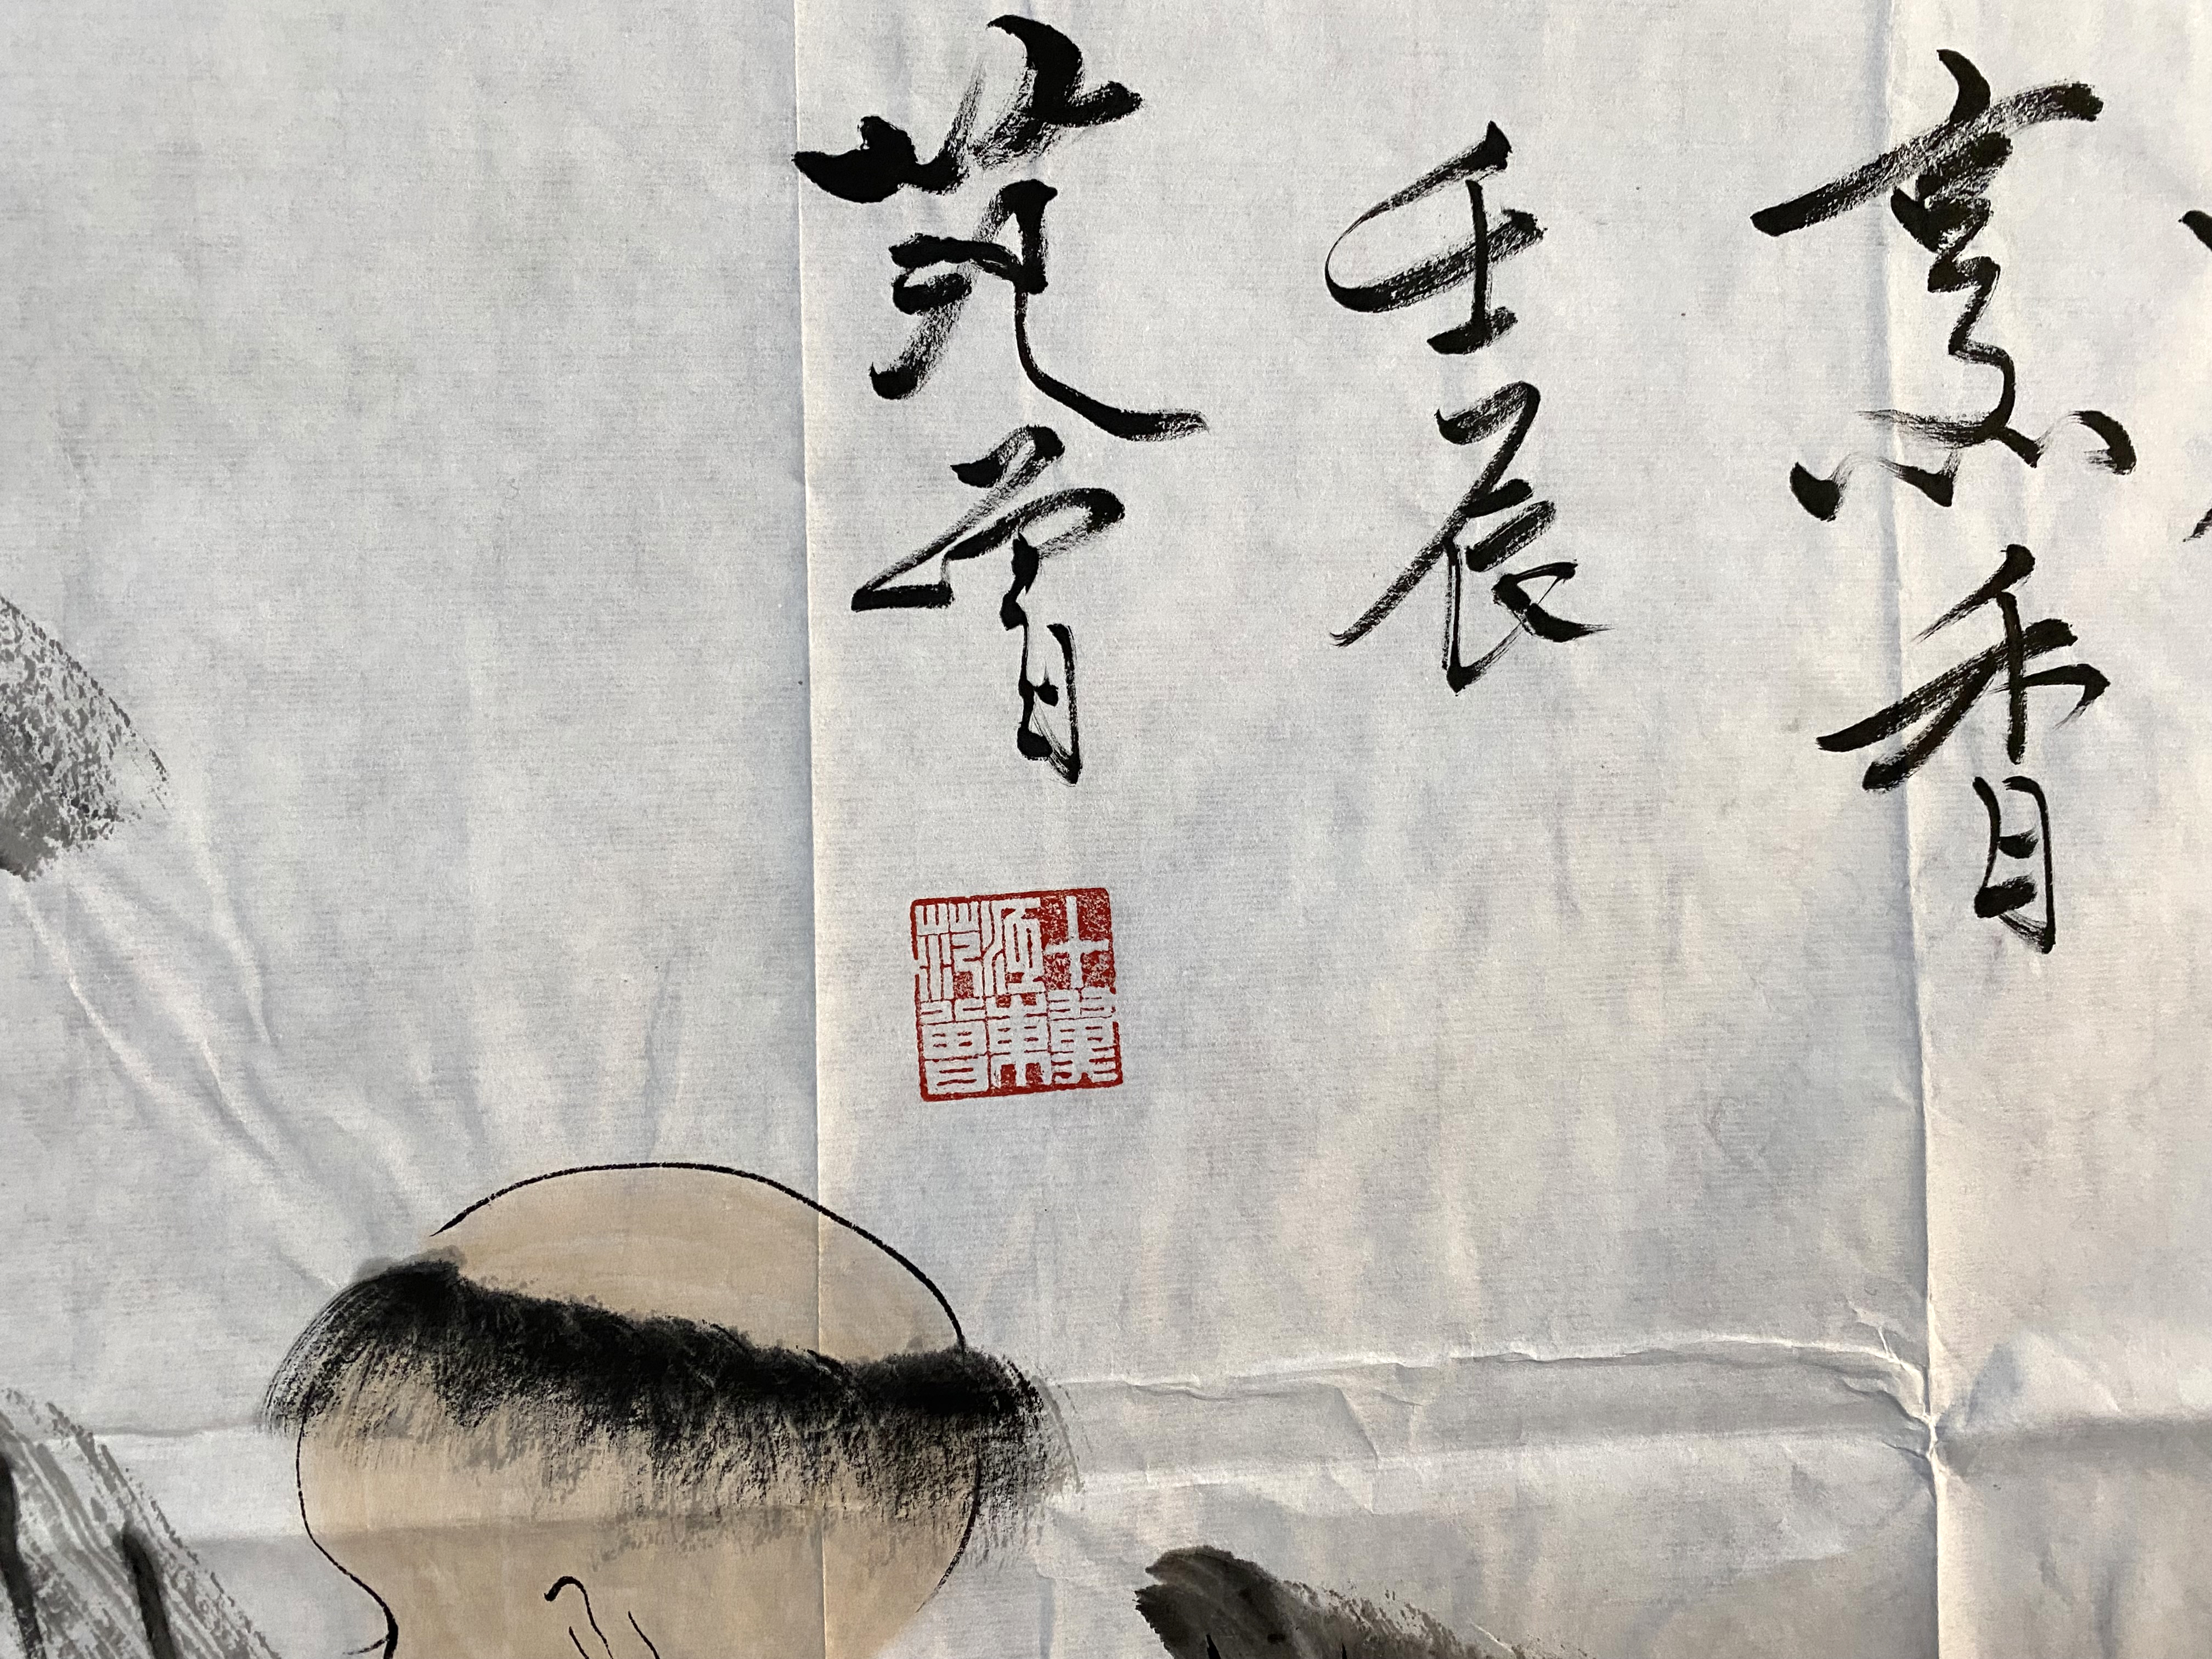 烹香
壬辰
范曾
十翼
范曾